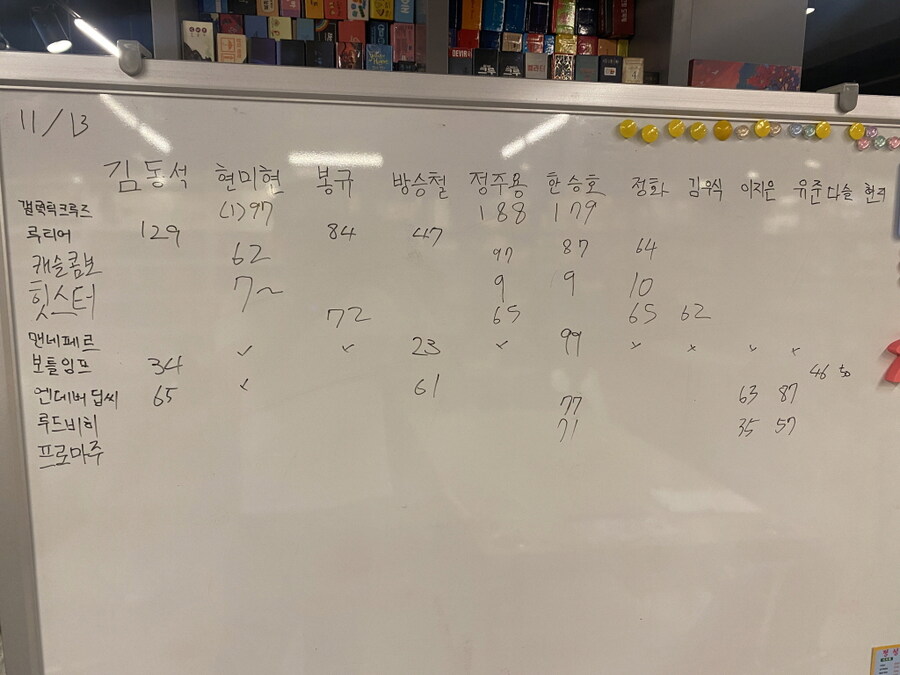 11/13
김동석 현미현 봉규 방승철 정주용 한승호 정화 김우식 이지은 유준 다슬
갤럭틱크루즈 (1)97 188 179
루티어 129 84 47
캐슬콤보 62 97 87 64
힛스터 7~ 9 9 10
72 65 65 62
맨네페르 ✓ ✓ 23 ✓ 99 ✓ ✓ ✓ ✓
보틀임프 34 46 50
엔데버딥씨 65 ✓ 61 63 87
루드비히 77
프로마주 71 35 57